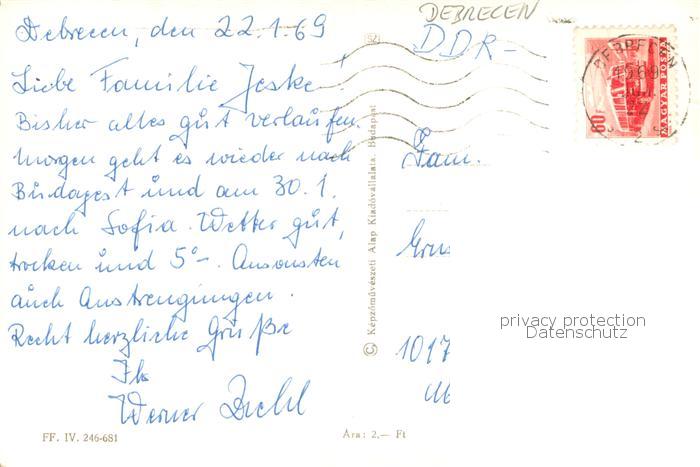 DEBRECEN
Debrecen, den 22.1.69
DDR-
Liebe Familie Jeske.
Bisher alles gut verlaufen.
Morgen geht es wieder nach
Budapest und am 30.1.
nach Sofia. Wetter gut,
trocken und 5°-. Ansonsten
auch Anstrengungen.
Recht herzliche Grüße
Ihr
Werner
Fam.
1017
60f
MAGYAR POSTA
DEBRECEN
© Képzőművészeti Alap Kiadóvállalata, Budapest
privacy protection
Datenschutz
FF. IV. 246-681
Ára: 2,— Ft